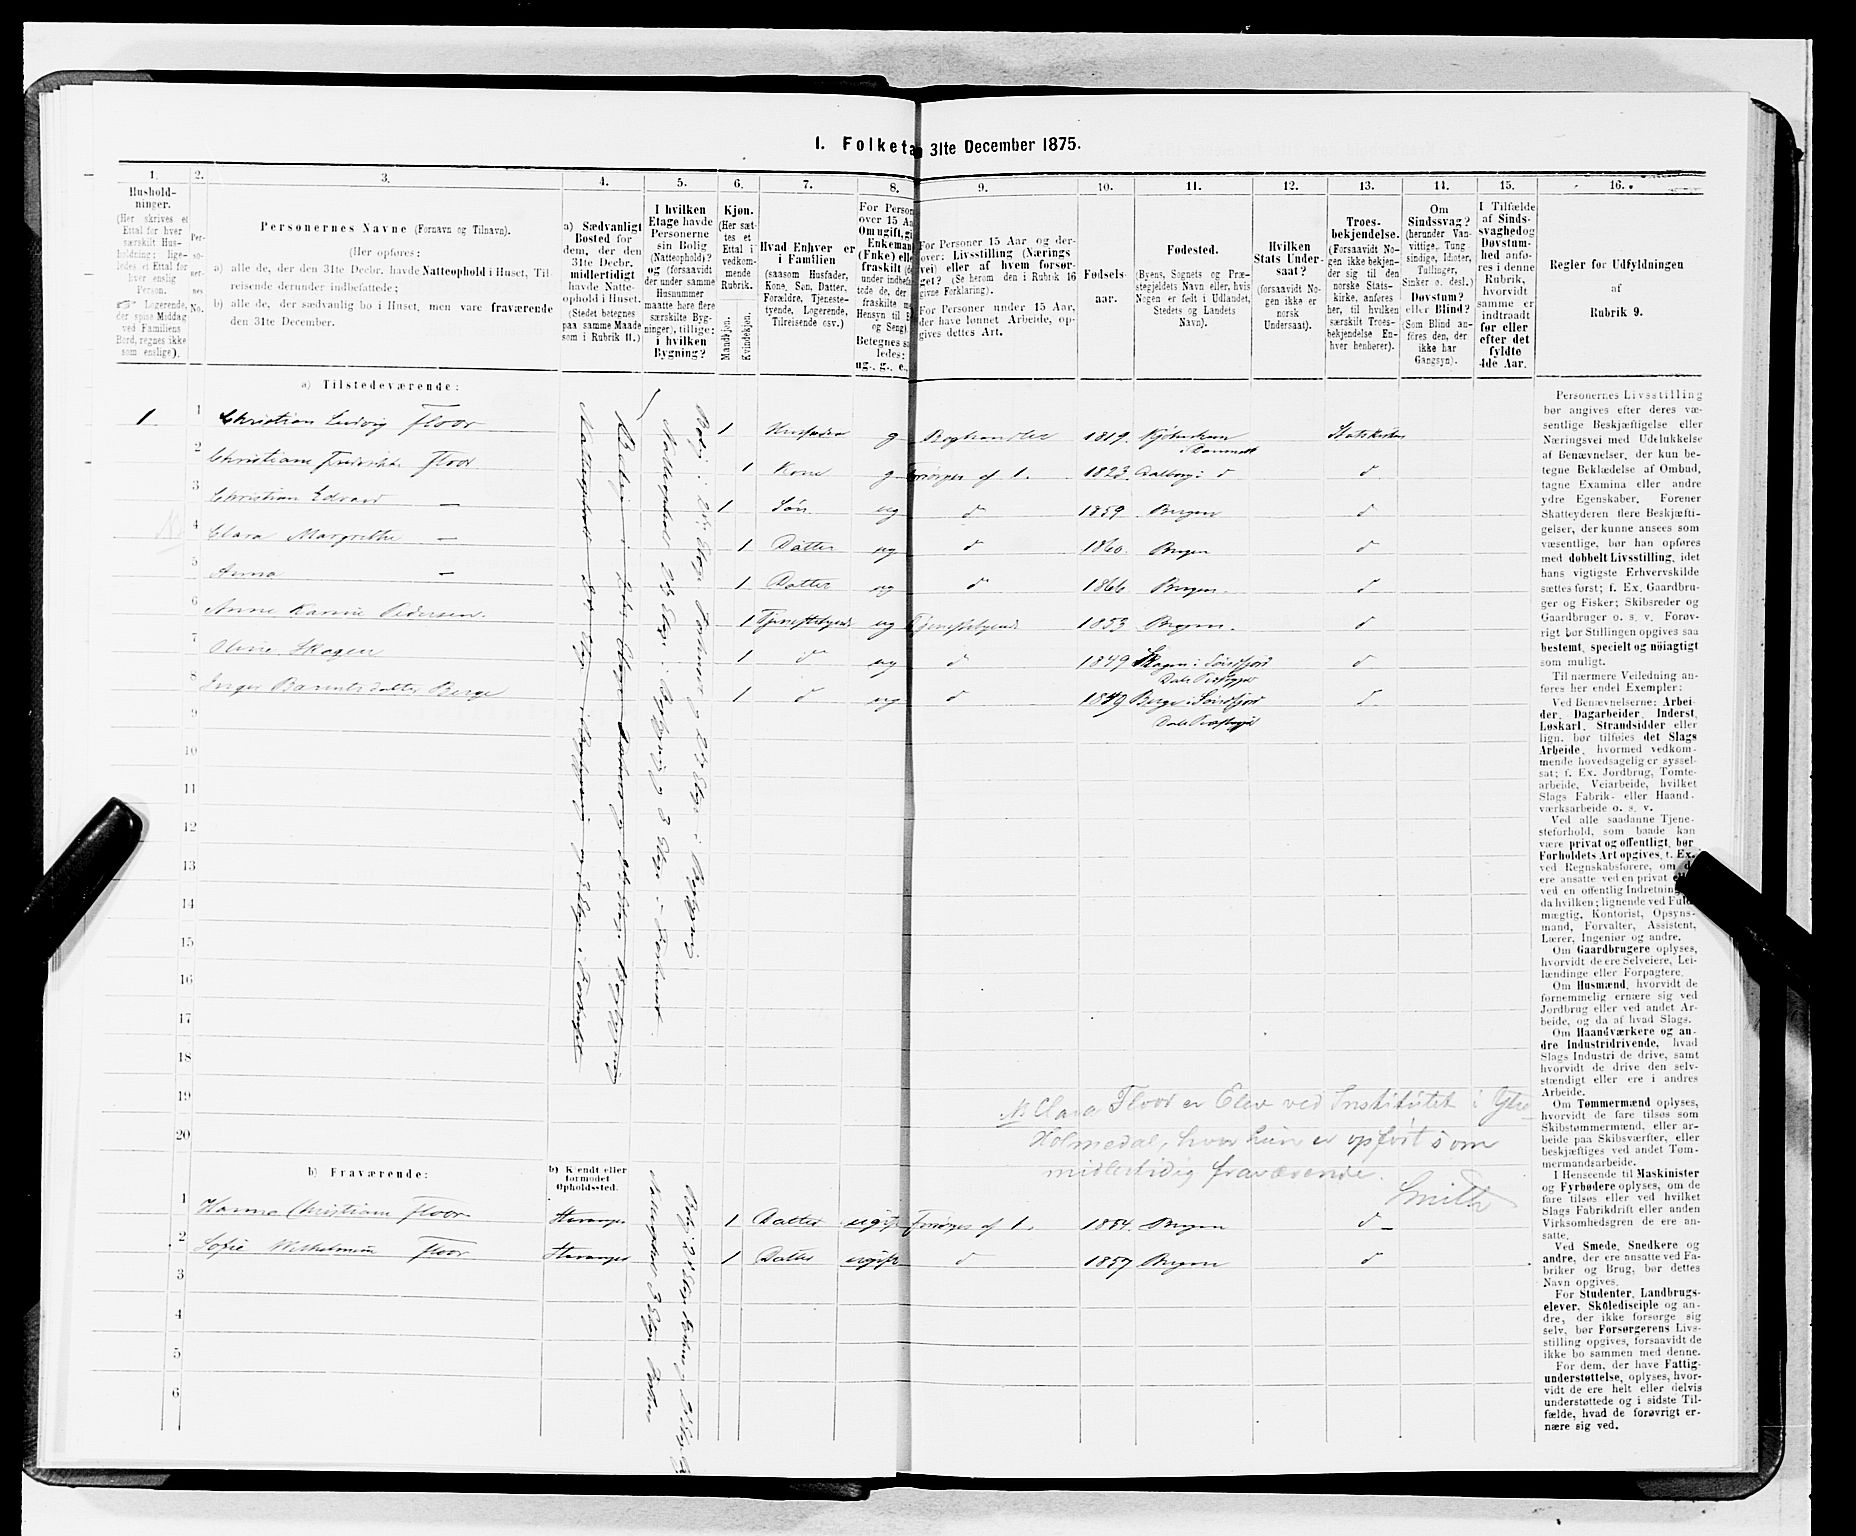 I. Folketa 31te December 1875.
1.
2.
3.
4.
5.
6.
7.
8.
9.
10.
11.
12.
13.
14.
15.
16.
Hushold-
ninger.
(Her skrives et
Ettal for hver
særskilt Hus-
holdning; lige-
ledes et Ettal for
hver enslig
Person.
☞ Logerende,
der spise Middag
ved Familiens
Bord, regnes ikke
som enslige).
Per-
so-
ner-
nes
No.
Personernes Navne (Fornavn og Tilnavn).
(Her opføres:
a) alle de, der den 31te Decbr. havde Natteophold i Huset, Til-
reisende derunder indbefattede;
b) alle de, der sædvanlig bo i Huset, men vare fraværende
den 31te December.
a) Sædvanligt
Bosted for
dem, der den
31te Decbr.
midlertidigt
havde Natte-
ophold i Huset.
(Stedet betegnes
paa samme Maade
som i Rubrik 11.)
I hvilken
Etage havde
Personerne
sin Bolig
(Natteophold)?
og (forsaavidt
der under samme
Husnummer
maatte høre flere
særskilte Byg-
ninger), tillige:
i hvilken
Bygning?
Kjøn.
(Her sæt-
tes et
Ettal i
vedkom-
mende
Rubrik.
Mandkjøn.
Kvindekjøn.
Hvad Enhver er
i Familien
(saasom Husfader,
Kone, Søn, Datter,
Forældre, Tjeneste-
tyende, Logerende,
Tilreisende osv.)
For Person
over 15 Aa
Om ugift, gi
Enkemand
(Enke) elle
fraskilt
under indbe
tede de, der
fraskilte m
Hensyn til B
og Seng).
Betegnes sa
ledes:
ug., g., e.,
For Personer 15 Aar og der-
over: Livsstilling (Nærings
vei) eller af hvem forsør-
get? (Se herom den i Rubrik 16
givne Forklaring).
For Personer under 15 Aar,
der have lønnet Arbeide, op-
gives dettes Art.
Fødsels-
aar.
Fødested.
(Byens, Sognets og Præ-
stegjeldets Navn eller, hvis
Nogen er født i Udlandet,
Stedets og Landets
Navn).
Hvilken
Stats Under-
saat?
(forsaavidt No-
gen ikke er
norsk
Undersaat).
Troes-
bekjendelse.
(Forsaavidt No-
gen ikke bekjen-
der sig til den
norske Stats-
kirke, anføres
her, til hvilken
særskilt Troes-
bekjendelse En-
hver henhører).
Om
Sindssvag?
(herunder Van-
vittige, Tung
sindige, Idioter,
Tullinger,
Sinker o. desl.)
Døvstum?
eller Blind?
(Som Blind an-
føres den, der
ikke har
Gangsyn).
I Tilfælde
af Sinds-
svaghed og
Døvstum-
hed anfø-
res i denne
Rubrik,
hvorvidt
samme er
indtraadt
før eller
efter det
fyldte
4de Aar.
Regler for Udfyldningen
af
Rubrik 9.
a) Tilstedeværende:
1 1 Christian Ludvig Floor 1 Husfader g Boghandler 1819. Kjøbenhavn Statskirken
2 Christiane Frederikke Floor 1 Kone g Forsørges af 1. 1823. Aalborg i d d
3 Christian Edvard — 1 Søn ug d 1859 Bergen d
4 Clara Margrethe — 1 Datter ug d 1860. Bergen d
5 Anna — 1 Datter ug d 1866 Bergen. d
6 Anne Pedersen. 1 Tjenestetyende ug Tjenestetyende 1853 Bergen. d
7 Oline Skagen 1 d ug d 1849 Skagen i Søndfjord d
8 Inger Barentsdatter Berge 1 d ug d 1849 Berge i Søndfjord d
10
11
12
13
14
15
16
17
18
19
20
NB Clara Floor er Elev ved Institutet i Ytre
Holmedal, hvor hun er opført som
midlertidig fraværende.
Smith
b) Fraværende:
b) Kjendt eller
formodet
Opholdssted.
1 Hanna Christiane Floor Stavanger 1 Datter ugift Forsørges af 1. 1854. Bergen d
2 Sofie Wilhelmine Floor Stavanger 1 Datter ugift d 1857 Bergen d
3
4
5
6
Personernes Livsstilling
bør angives efter deres væ-
sentlige Beskjæftigelse eller
Næringsvei med Udelukkelse
af Benævnelser, der kun be-
tegne Beklædelse af Ombud,
tagne Examina eller andre
ydre Egenskaber. Forener
Skatteyderen flere Beskjæfti-
gelser, der kunne ansees som
væsentlige, bør han opføres
med dobbelt Livsstilling, idet
hans vigtigste Erhvervskilde
sættes først; f. Ex. Gaardbru-
ger og Fisker; Skibsreder og
Gaardbruger o. s. v. Forøv-
rigt bør Stillingen opgives saa
bestemt, specielt og nøiagtigt
som muligt.
Til nærmere Veiledning an-
føres her endel Exempler:
Ved Benævnelserne: Arbei-
der, Dagarbeider, Inderst,
Løskarl, Strandsidder eller
lign. bør tilføies det Slags
Arbeide, hvormed vedkom-
mende hovedsagelig er syssel-
sat; f. Ex. Jordbrug, Tomte-
arbeide, Veiarbeide, hvilket
Slags Fabrik- eller Haand-
værksarbeide o. s. v.
Ved alle saadanne Tjene-
steforhold, som baade kan
være privat og offentligt, bør
Forholdets Art opgives, t. Ex.
ved Regnskabsførere, om d
ere ansatte ved en privat el
ved en offentlig Indretning,
da hvilken; lignende ved Fuld-
mægtig, Kontorist, Opsyns-
mand, Forvalter, Assistent,
Lærer, Ingeniør og andre.
Om Gaardbrugere oplyses,
hvorvidt de ere Selveiere, Lei-
lændinge eller Forpagtere.
Om Husmænd, hvorvidt de
fornemmelig ernære sig ved
Jordbrug eller ved andet Ar-
beide, og da af hvad Slags.
Om Haandværkere og an-
dre Industridrivende, hvad
Slags Industri de drive, samt
hvorvidt de drive den selv-
stændigt eller ere i andres
Arbeide.
Om Tømmermænd oplyses,
hvorvidt de fare tilsøs som
Skibstømmermænd, eller ar-
beide paa Skibsværfter, eller
beskjæftiges ved andet Tøm-
mermandsarbeide.
I Henseende til Maskinister
og Fyrbødere oplyses, om de
fare tilsøs eller ved hvilket
Slags Fabrikdrift eller anden
Virksomhedsgren de ere an-
satte.
Ved Smede, Snedkere og
andre, der ere ansatte ved Fa-
briker og Brug, bør dettes
Navn opgives.
For Studenter, Landbrugs-
elever, Skoledisciple og an-
dre, der ikke forsørge sig
selv, bør Forsørgerens Livs-
stilling opgives, forsaavidt de
ikke bo sammen med denne.
For dem, der have Fattig-
understøttelse, oplyses, hvor-
vidt de ere helt eller delvis
understøttede og i sidste Til-
fælde, hvad de forøvrigt er-
nære sig ved.